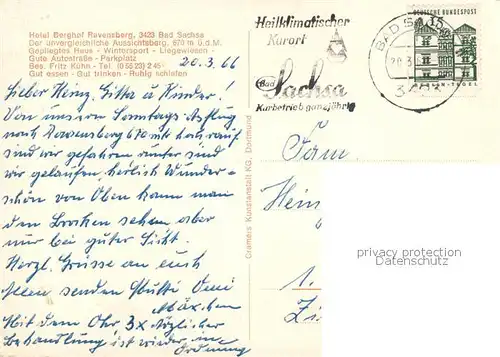 Hotel Berghof Ravensberg, 3423 Bad Sachsa
Der unvergleichliche Aussichtsberg, 670 m ü.d.M.
Gepflegtes Haus - Wintersport - Liegewiesen -
Gute Autostraße - Parkplatz
Bes. Fritz Kühn - Tel. (0 55 23) 2 45
Gut essen - Gut trinken - Ruhig schlafen
20.3.66
Lieber Heinz, Gitta u Kinder!
Von unserm Sonntags Ausflug
nach Ravensberg 670 mtr hoch rauf
sind wir gefahren runter sind
wir gelaufen, herlich Wunder-
schön von Oben kann man
den Brocken sehen aber
nur bei guter Sicht.
Herzl. Grüsse an euch
Allen senden Mutti Omi
Mäxchen
Mit dem Ohr 3x täglicher
Behandlung ist wieder in
Ordnung
Cramers Kunstanstalt KG, Dortmund
Heilklimatischer
Kurort
Bad
Sachsa
Kurbetrieb ganzjährig
BAD SA
20.3.
DEUTSCHE BUNDESPOST
15
Fam.
Hein
1.
privacy protection
Datenschutz